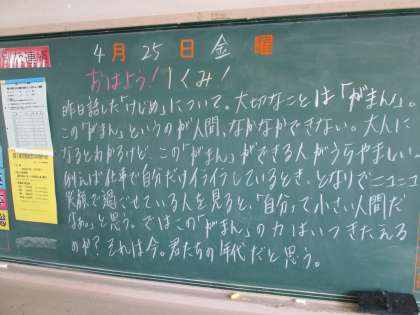 4月25日金曜
おはよう！1くみ！
昨日話した「けじめ」について。大切なことは「がまん」の
この「がまん」というのが人間、なかなかできない。大人に
なるとわかるけど、この「がまん」ができる人がうらやましい。
例えば仕事で自分だけイライラしているとき、となりでニコニコ
笑顔で過ごせている人を見ると、「自分って小さい人間だ
なぁ」と思う。ではこの「がまん」の力はいつきたえる
のか？それは今。君たちの年代だと思う。